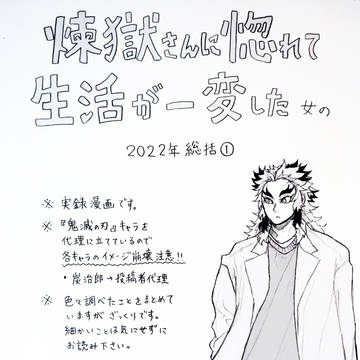 煉獄さんに惚れて
生活が一変した女の
2022年 総括①
※ 実録漫画です。
※ 『鬼滅の刃』キャラを
代理に立てているので
各キャラのイメージ崩壊注意!!
・炭治郎→投稿者代理
※ 色々調べたことをまとめて
いますがざっくりです。
細かいことは気にせずに
お読み下さい。